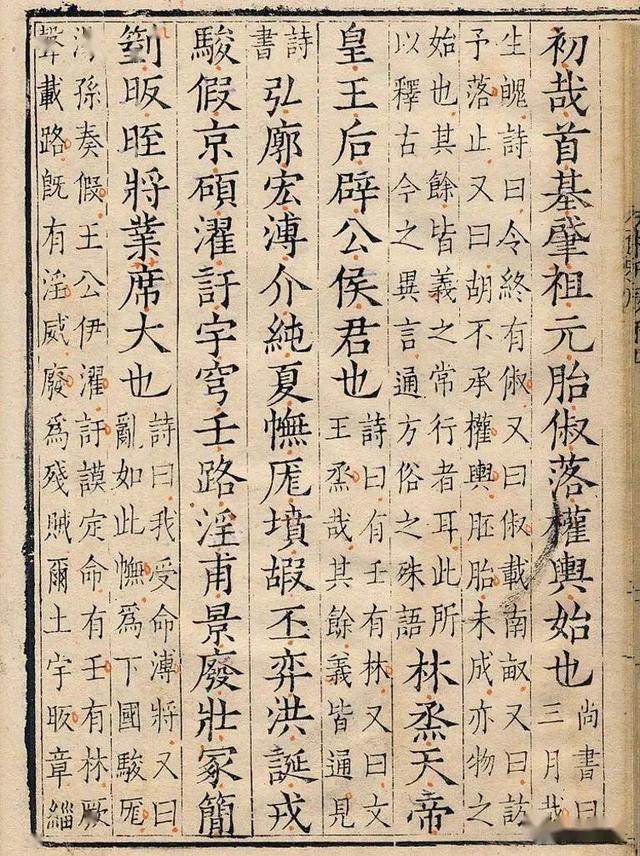 初哉首基肇祖元胎俶落權輿始也尚書曰三月哉
生魄詩曰令終有俶又曰俶載南畝又曰訪
予落止又曰胡不承權輿胚胎未成亦物之
始也其餘皆義之常行者耳此所
以釋古今之異言通方俗之殊語
林烝天帝
皇王后辟公侯君也詩曰有壬有林又曰文
王烝哉其餘義皆通見
詩書弘廓宏溥介純夏幠厖墳嘏丕弈洪誕戎
駿假京碩濯訏宇穹壬路淫甫景廢壯冢簡
箌昄晊將業席大也詩曰我受命溥將又曰
亂如此幠為下國駿厖
湯孫奏假王公伊濯訏謨定命有壬有林厥
聲載路既有淫威廢為殘賊爾土宇昄章緇